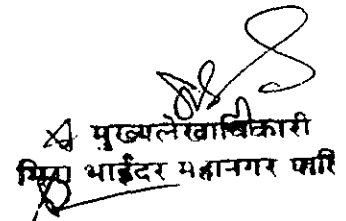 मुख्यलेखाधिकारी
मिरा भाईंदर महानगर पारि